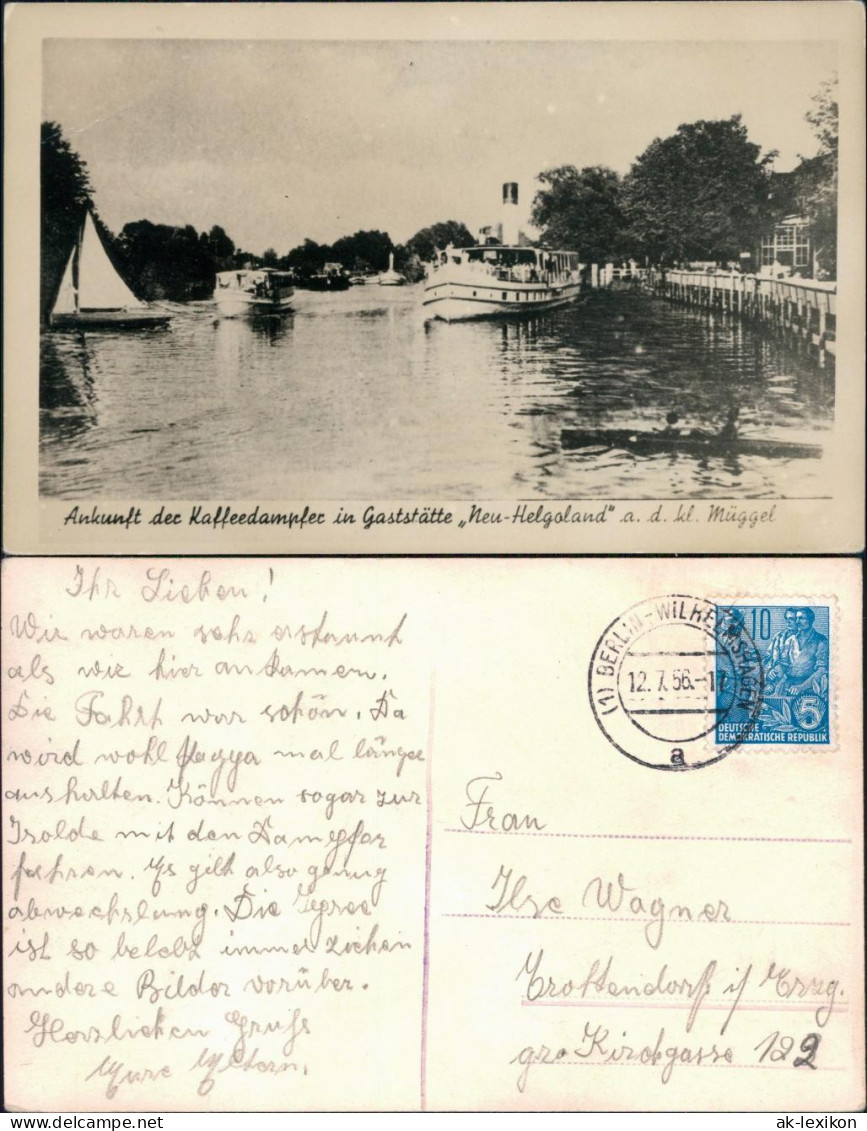 Ankunft der Kaffeedampfer in Gaststätte „Neu-Helgoland" a. d. kl. Müggel
Ihr Lieben!
Wir waren sehr erstaunt
als wir hier ankamen.
Die Fahrt war schön. Da
wird wohl mal länger
aushalten. Können sogar zur
Isolde mit den Dampfer
fahren. Es gibt also genug
abwechslung. Die Spree
ist so belebt immer ziehen
andere Bilder vorüber.
Herzlichen Gruß
Eure Eltern.
(1) BERLIN-WILHELMSHAGEN
12.7.56.-17
a
10
5
DEUTSCHE
DEMOKRATISCHE REPUBLIK
Frau
Ilse Wagner
Crottendorf i/ Erzg.
gro Kirchgasse 122
ak-lexikon